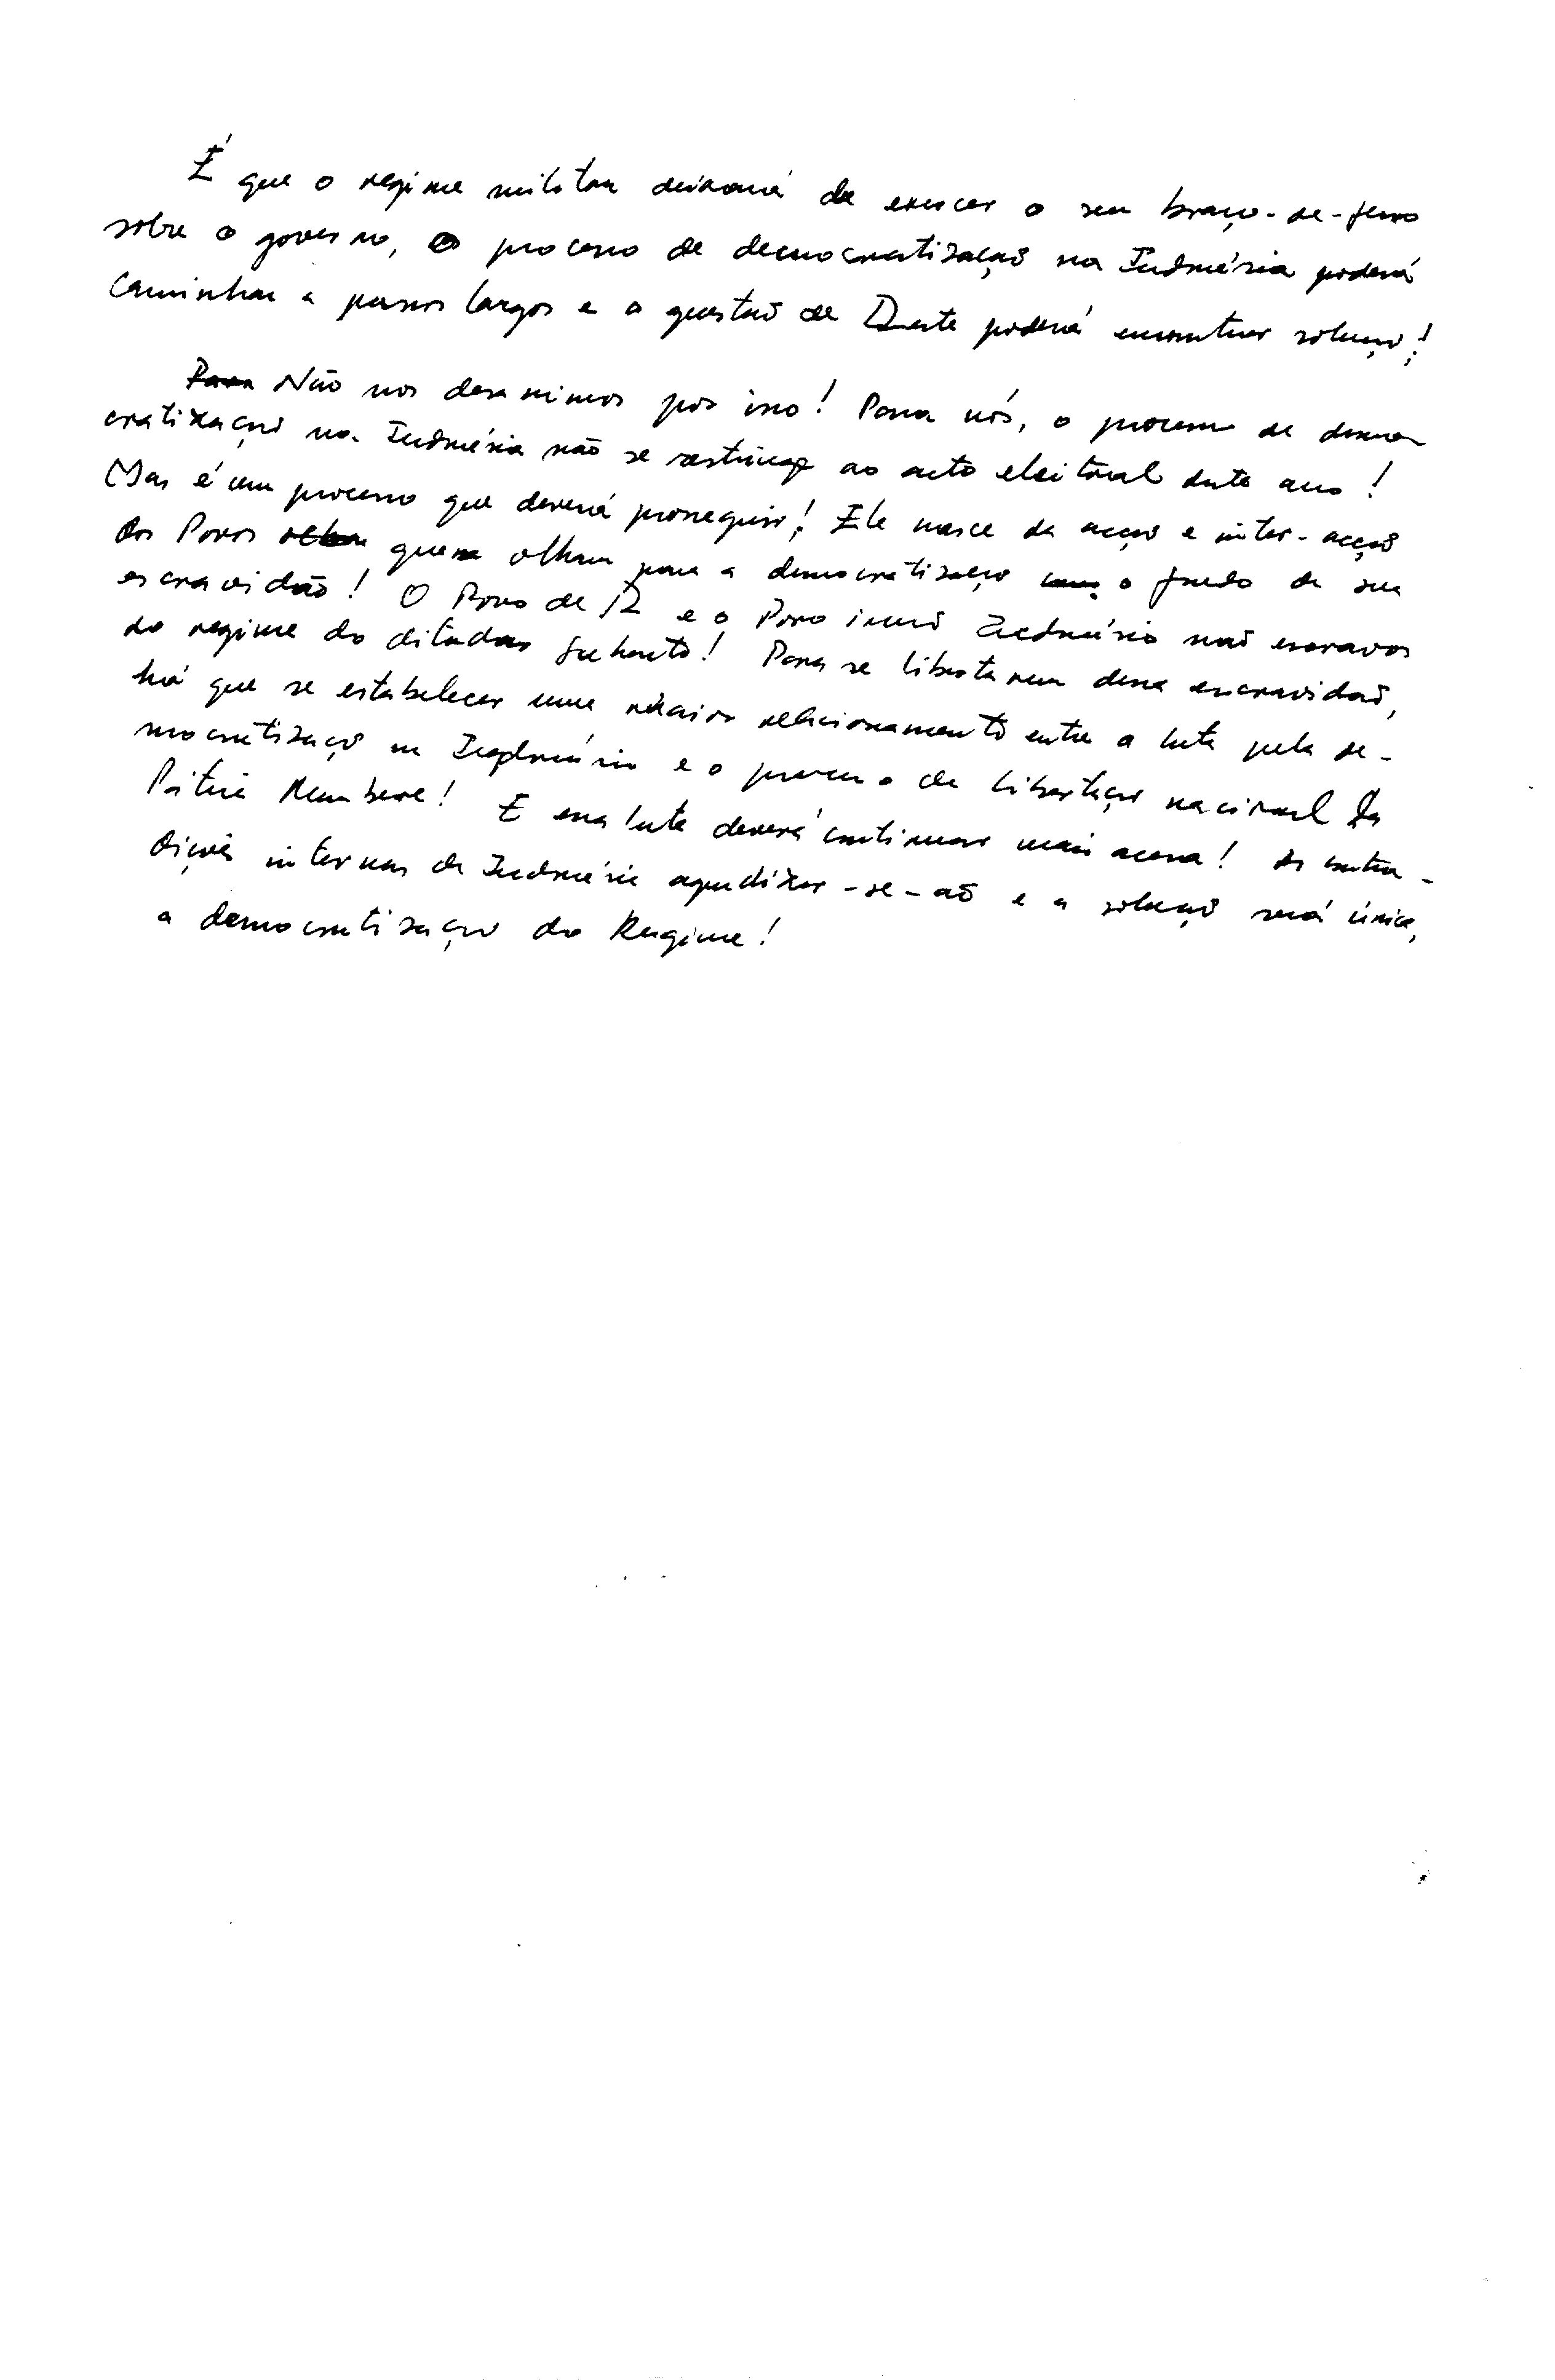 É que o regime militar deixará de exercer o seu braço-de-ferro
sobre o governo, o processo de democratização na Indonésia poderá
caminhar a passos largos e a questão de Leste poderá encontrar solução!
Para Não nos desanimos por isso! Para nós, o processo de demo-
cratização na Indonésia não se restringe ao acto eleitoral deste ano!
Mas é um processo que deverá prosseguir! Ele nasce da acção e inter-acção
dos Povos que olham para a democratização o fundo de sua
escravidão! O Povo de e o Povo irmão Indonésio são escravos
do regime do ditador Suharto! Para se libertarem dessa escravidão,
há que se estabelecer um maior relacionamento entre a luta pela de-
mocratização na Indonésia e o processo de libertação nacional da
Pátria Maubere! E essa luta deverá continuar mais acesa! As contra-
dições internas da Indonésia agudizar-se-ão e a solução será única,
a democratização do Regime!